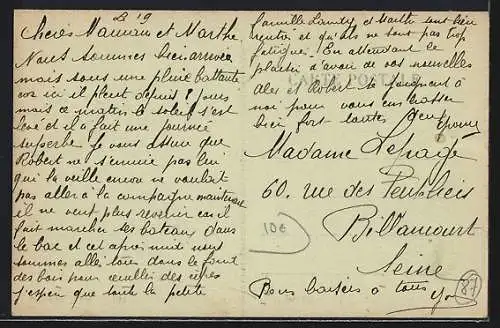 Le 19
Chères Maman et Marthe
Nous sommes bien arrivés
mais sous une pluie battante
car ici il pleut depuis 8 jours
mais ce matin le soleil s'est
levé et il a fait une journée
superbe je vous assure que
Robert ne s'ennuie pas lui
qui la veille encore ne voulait
pas aller à la campagne maintenant
il ne veut plus revenir car il
fait marcher ses bateaux dans
le bac et cet après midi nous
sommes allé tous dans le fond
des bois pour cueillir des
j'espère que toute la petite
famille et Marthe sont bien
rentré et qu'ils ne sont pas trop
fatigués. En attendant le
plaisir d'avoir de vos nouvelles
Alex et Robert se joignent à
moi pour vous embrasser
bien fort toutes deux
CARTE POSTALE
Madame Lepage
60. rue des Peupliers
Billancourt
Seine
Bons baisers à tous
10€
87